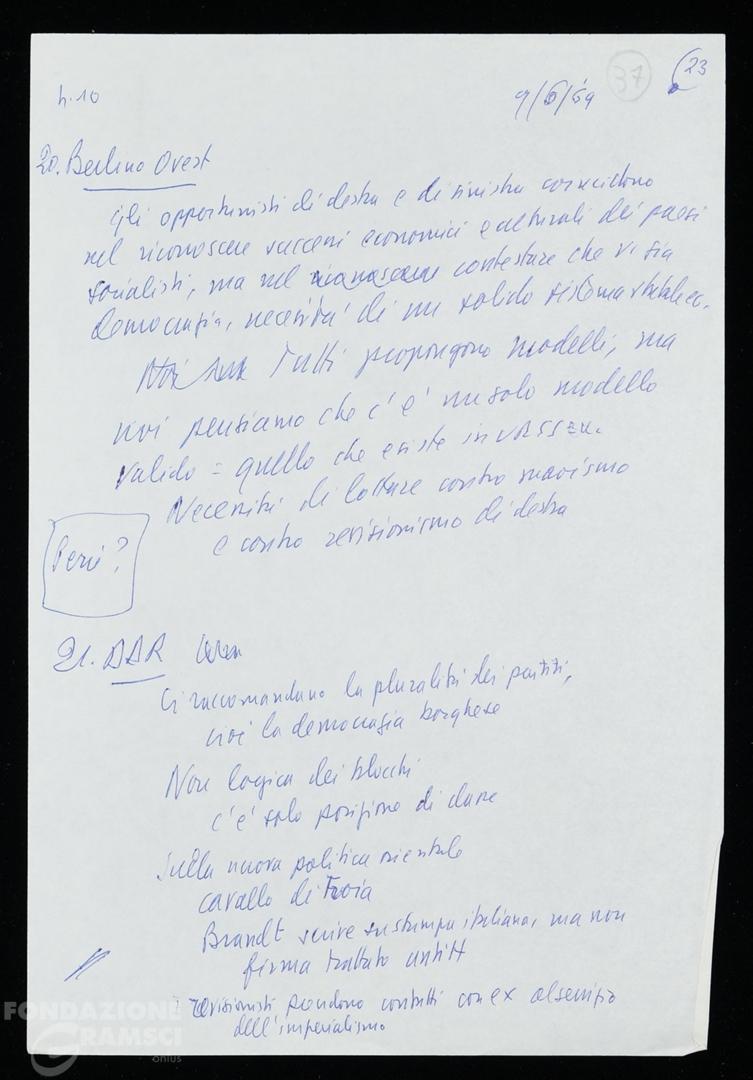 h. 10
9/6/69
37
23
20. Berlino Ovest
Gli opportunisti di destra e di sinistra coincidono
nel riconoscere successi economici e culturali dei paesi
socialisti, ma nel riconoscere contestare che vi sia
democrazia, necessità di un solido sistema statale ec.
Noi Tutti propongono modelli, ma
noi pensiamo che c'è un solo modello
valido = quello che esiste in URSS
Necessità di lottare contro maoismo
e contro revisionismo di destra
Perù?
21. DDR
Ci raccomandano la pluralità dei partiti,
cioè la democrazia borghese
Non logica dei blocchi
c'è solo posizione di classe
Sulla nuova politica orientale
cavallo di Troia
Brandt scrive su stampa italiana, ma non
firma trattato anti H
revisionisti prendono contatti con ex al servizio
dell'imperialismo
FONDAZIONE
GRAMSCI
onlus